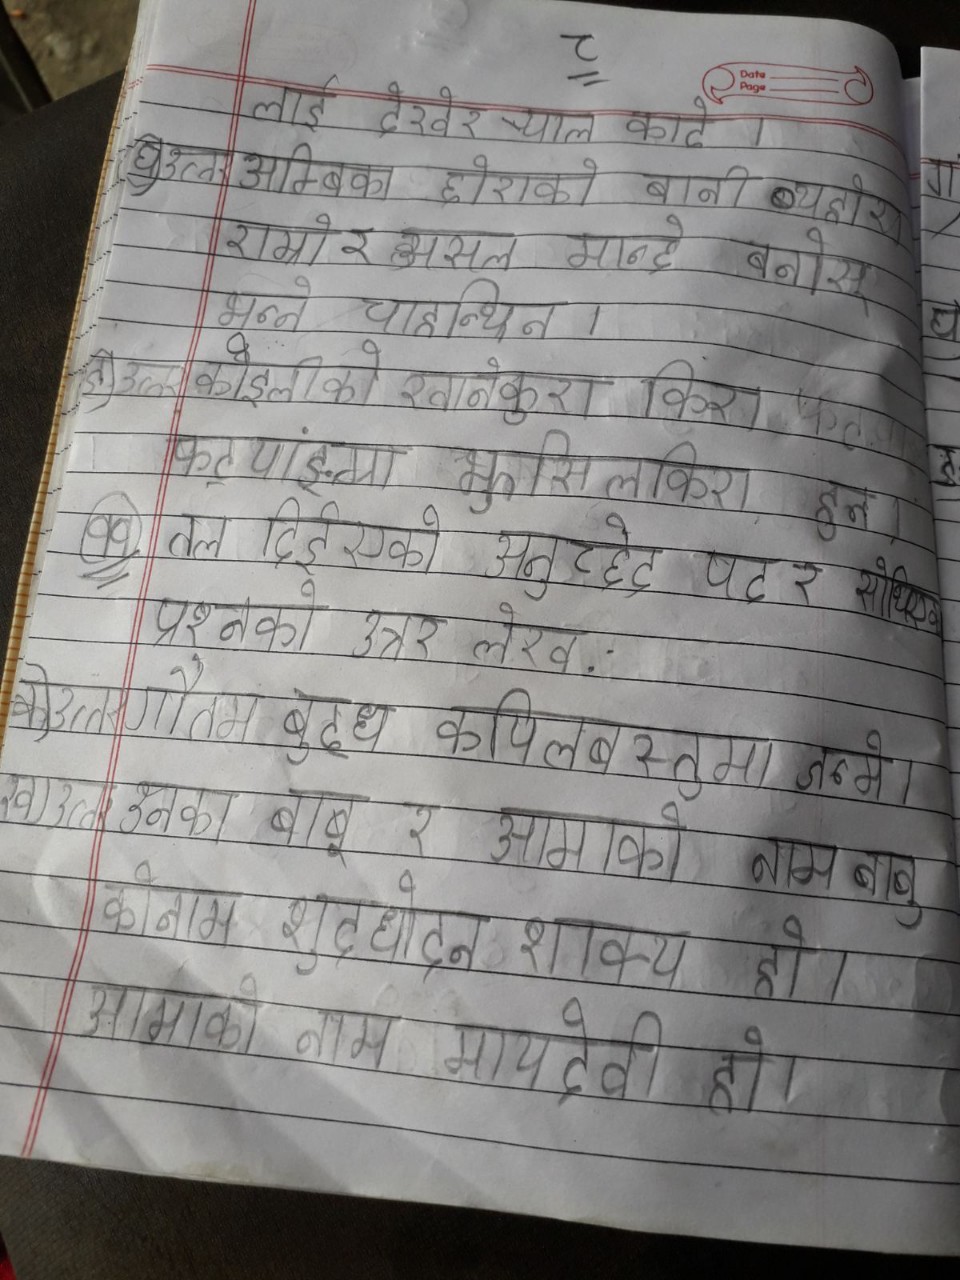 ८
Date
Page
लाई देखेर ¥याल काढे ।
घ)उत्तर अम्बिका छोराको बानी ब्यहोरा
राम्रो र असल मान्छे बनोस्
भन्ने चाहन्थिन ।
ङ)उत्तर कोइलीको खानेकुरा किरा
फट्याङ्ग्रा झुसिलकिरा हुन् ।
११) तल दिईएको अनुच्छेद पढ र सोधिएका
प्रश्नको उत्रर लेख :
क)उत्तर गौतम बुद्ध कपिलबस्तुमा जन्मे ।
ख)उत्तर उनका बाबु र आमाको नाम बाबु
कोनाम शुद्धोदन शाक्य हो ।
आमाको नाम मायदेवी हो ।